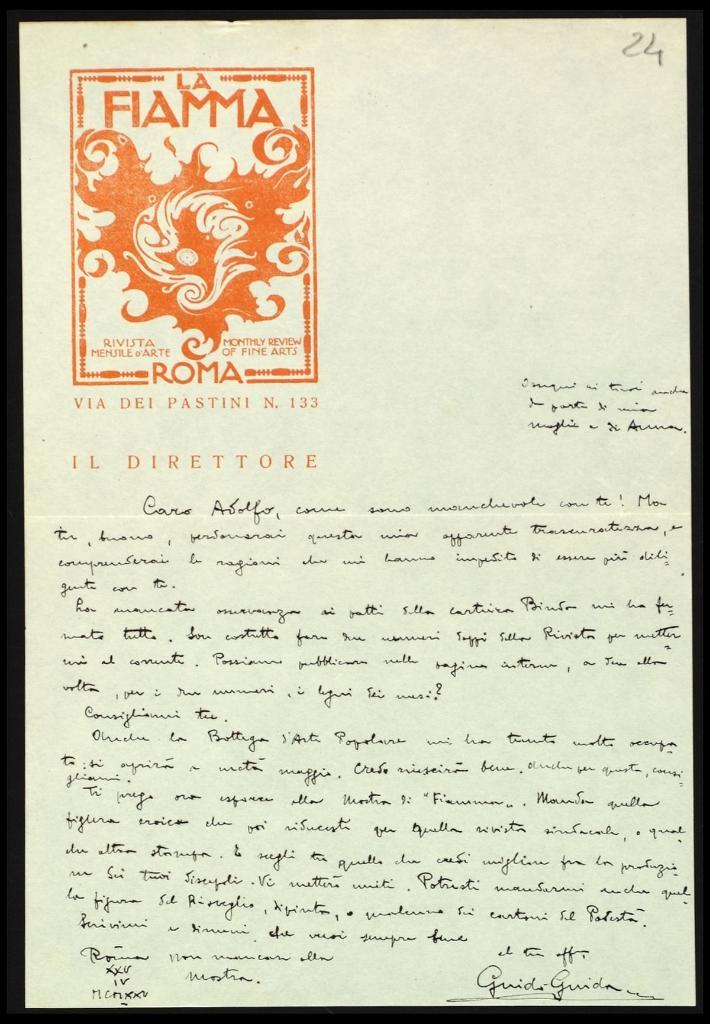 24
LA
FIAMMA
RIVISTA
MENSILE D'ARTE
MONTHLY REVIEW
OF FINE ARTS
ROMA
VIA DEI PASTINI N. 133
IL DIRETTORE
Ossequi ai tuoi anche
da parte di mia
moglie e di Anna.
Caro Adolfo, come sono manchevole con te! Ma
tu, buono, perdonerai questa mia apparente trascuratezza, e
comprenderai le ragioni che mi hanno impedito di essere più dili-
gente con te.
La mancata osservanza ai patti della cartiera Binda mi ha fer-
mato tutto. Son costretto fare due numeri doppi della Rivista per metter
mi al corrente. Possiamo pubblicare nelle pagine interne, a due alla
volta, per i due numeri, i legni dei mesi?
Consigliami tu.
Anche la Bottega d'Arte Popolare mi ha tenuto molto occupa
to: si aprirà a metà maggio. Credo riuscirà bene. Anche per questo, consi-
gliami.
Ti prego ora esporre alla Mostra di "Fiamma". Manda quella
figura eroica che poi riducesti per quella rivista sindacale, o qual
che altra stampa. E scegli tu quello che credi migliore fra la produzio
ne dei tuoi discepoli. Vi metterò uniti. Potresti mandarmi anche quel
la figura del Risveglio, dipinta, o qualcuno dei cartoni del Podestà.
Scrivimi e dimmi che vuoi sempre bene
al tuo aff.
Guido Guida
Roma
XXV
IV
MCMXXV
Non mancare alla
mostra.